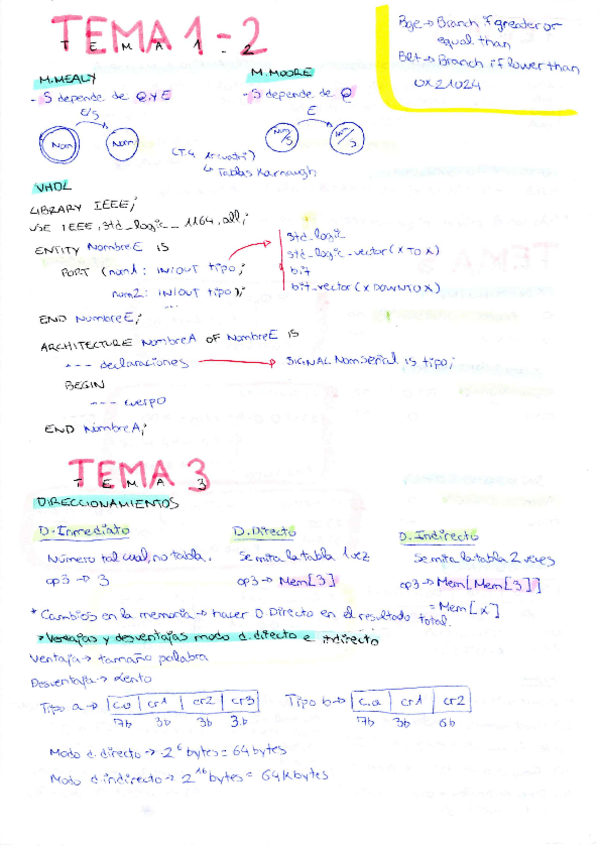 TEMA 1-2
TEMA 1-2
Bge → Branch if greater or
equal than
Blt → Branch if lower than
0x21024
M.MEALY
- S depende de Q y E
E/S
Nom
Nom
M.MOORE
- S depende de Q
E
Nom/S
Nom/S
↳ Tablas Karnaugh
VHDL
LIBRARY IEEE;
USE IEEE.std_logic_1164.all;
ENTITY NombreE IS
PORT (nom1: IN/OUT tipo;
nom2: IN/OUT tipo);
std_logic
std_logic_vector (X TO X)
bit
bit_vector (X DOWNTO X)
END NombreE;
ARCHITECTURE NombreA OF NombreE IS
--- declaraciones → SIGNAL NomSeñal is tipo;
BEGIN
--- cuerpo
END NombreA;
TEMA 3
TEMA 3
DIRECCIONAMIENTOS
D. Inmediato
Número tal cual, no tabla.
op3 → 3
D. Directo
Se mira la tabla 1 vez
op3 → Mem[3]
D. Indirecto
Se mira la tabla 2 veces
op3 → Mem[Mem[3]]
= Mem[x]
* Cambios en la memoria → hacer D. Directo en el resultado total.
> Ventajas y desventajas modo d. directo e indirecto
Ventaja → tamaño palabra
Desventaja → lento
Tipo a → C.O | cr1 | cr2 | cr3
7b 3b 3b 3b
Tipo b → C.O | cr1 | cr2
7b 3b 6b
Modo d. directo → 2^6 bytes = 64 bytes
Modo d. indirecto → 2^16 bytes = 64 Kbytes